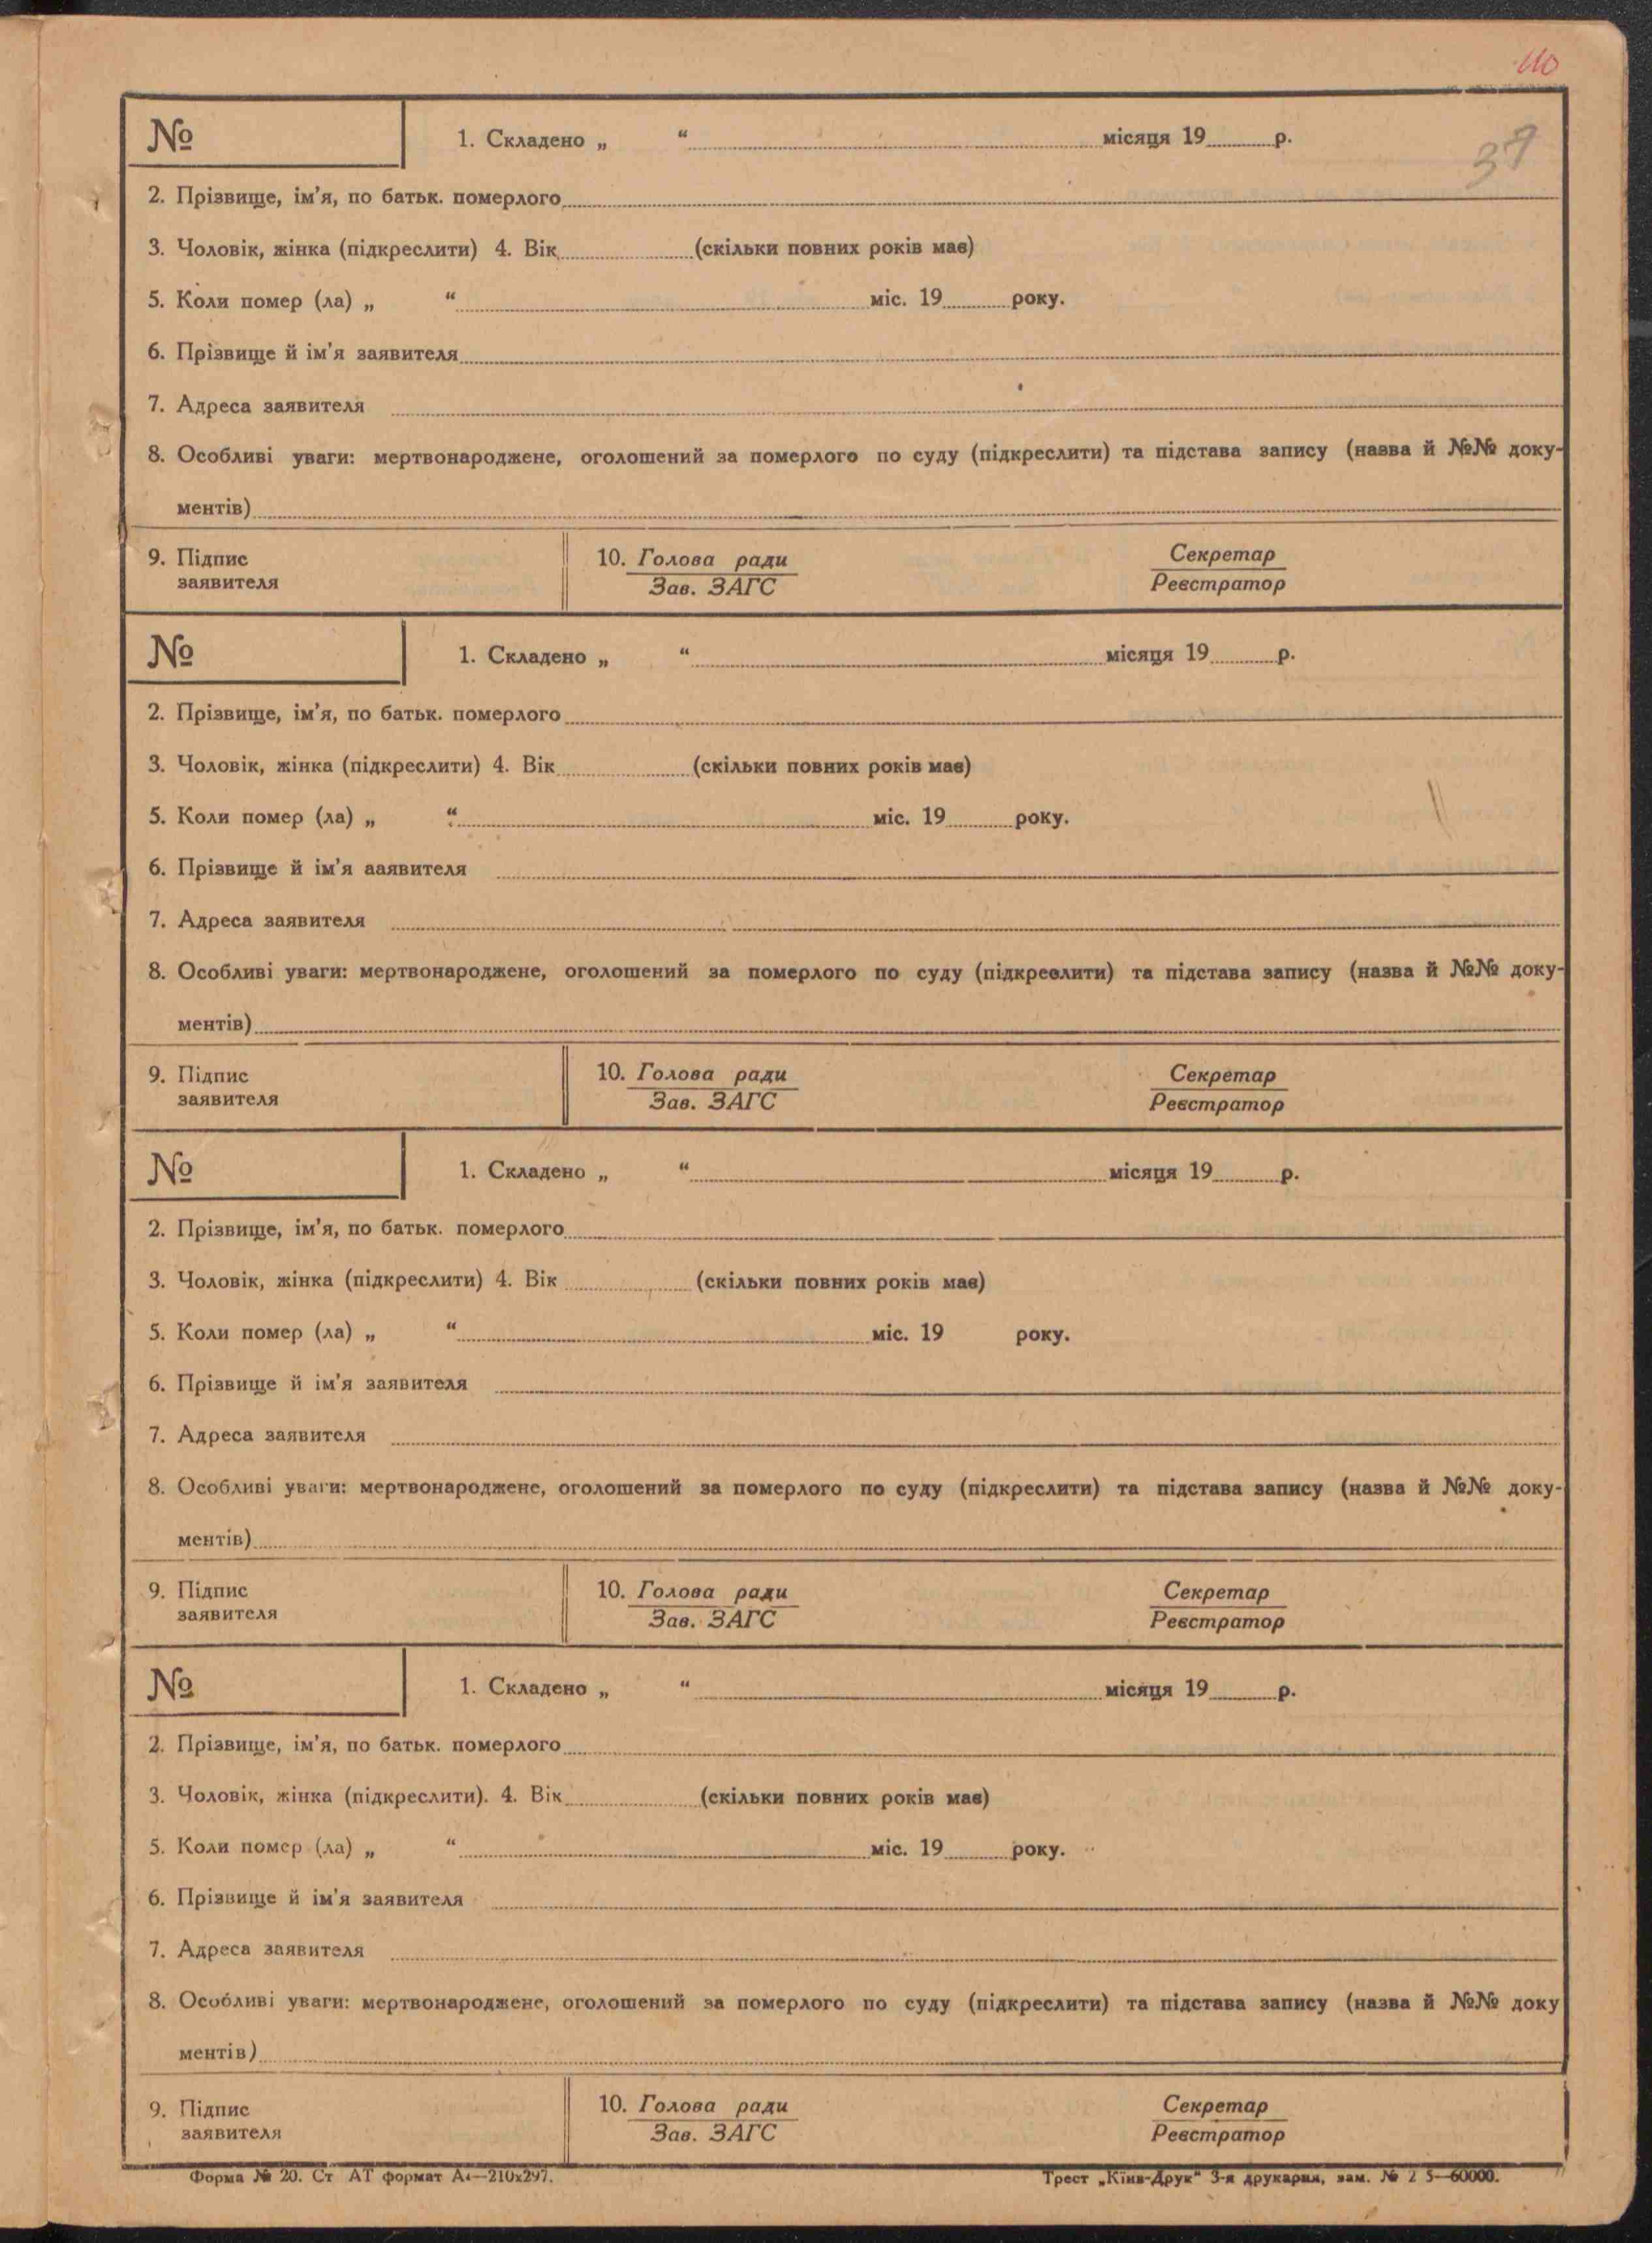 № 1. Складено „ “ місяця 19 р.
37
2. Прізвище, ім'я, по батьк. померлого
3. Чоловік, жінка (підкреслити) 4. Вік (скільки повних років має)
5. Коли помер (ла) „ “ міс. 19 року.
6. Прізвище й ім'я заявителя
7. Адреса заявителя
8. Особливі уваги: мертвонароджене, оголошений за померлого по суду (підкреслити) та підстава запису (назва й №№ доку-
ментів)
9. Підпис 10. Голова ради Секретар
заявителя Зав. ЗАГС Реєстратор
№ 1. Складено „ “ місяця 19 р.
2. Прізвище, ім'я, по батьк. померлого
3. Чоловік, жінка (підкреслити) 4. Вік (скільки повних років має)
5. Коли помер (ла) „ “ міс. 19 року.
6. Прізвище й ім'я ааявителя
7. Адреса заявителя
8. Особливі уваги: мертвонароджене, оголошений за померлого по суду (підкреслити) та підстава запису (назва й №№ доку-
ментів)
9. Підпис 10. Голова ради Секретар
заявителя Зав. ЗАГС Реєстратор
№ 1. Складено „ “ місяця 19 р.
2. Прізвище, ім'я, по батьк. померлого
3. Чоловік, жінка (підкреслити) 4. Вік (скільки повних років має)
5. Коли помер (ла) „ “ міс. 19 року.
6. Прізвище й ім'я заявителя
7. Адреса заявителя
8. Особливі уваги: мертвонароджене, оголошений за померлого по суду (підкреслити) та підстава запису (назва й №№ доку-
ментів)
9. Підпис 10. Голова ради Секретар
заявителя Зав. ЗАГС Реєстратор
№ 1. Складено „ “ місяця 19 р.
2. Прізвище, ім'я, по батьк. померлого
3. Чоловік, жінка (підкреслити). 4. Вік (скільки повних років має)
5. Коли помер (ла) „ “ міс. 19 року.
6. Прізвище й ім'я заявителя
7. Адреса заявителя
8. Особливі уваги: мертвонароджене, оголошений за померлого по суду (підкреслити) та підстава запису (назва й №№ доку
ментів)
9. Підпис 10. Голова ради Секретар
заявителя Зав. ЗАГС Реєстратор
Форма № 20. Ст АТ формат А4—210х297. Трест „Київ-Друк“ 3-я друкарня, зам. № 2 5—60000.